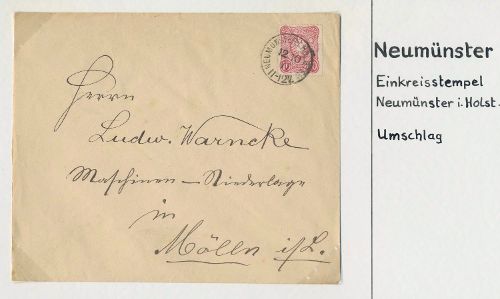 Herrn
Ludw. Warncke
Maschinen-Niederlage
in
Mölln i/L.
Neumünster
Einkreisstempel
Neumünster i. Holst.
Umschlag